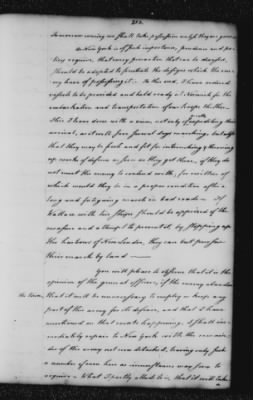 tomorrow evening we shall take possession unless they are gone
As New York is of such importance, prudence and po-
licy require, that every precaution that can be devised,
should be adopted to frustrate the designs which the ene-
my have of possessing it. To this end, I have ordered
vessels to be provided and held ready at Norwich for the
embarkation and transportation of our troops thither.
This I have done with a view, not only of expediting their
arrival, as it will save several days marching, but also
that they may be fresh and fit for intrenching & throwing
up works of defence as soon as they get there, if they do
not meet the enemy to contend with, for neither of
which would they be in a proper condition after a
long and fatiguing march in bad roads. If
Wallace with his ships should be apprized of the
measure and attempt to prevent it, by stopping up
the harbour of New London, they can but pursue
their march by land
You will please to observe that it is the
opinion of the general officers, if the enemy abandon
the town, that it will be unnecessary to employ or keep any
part of this army for its defence, and that I have
mentioned on that event's happening, I shall im-
mediately repair to New York with the remain-
der of the army not now detached, leaving only such
a number of men here as circumstances may seem to
require. What I partly allude to is, that it will take